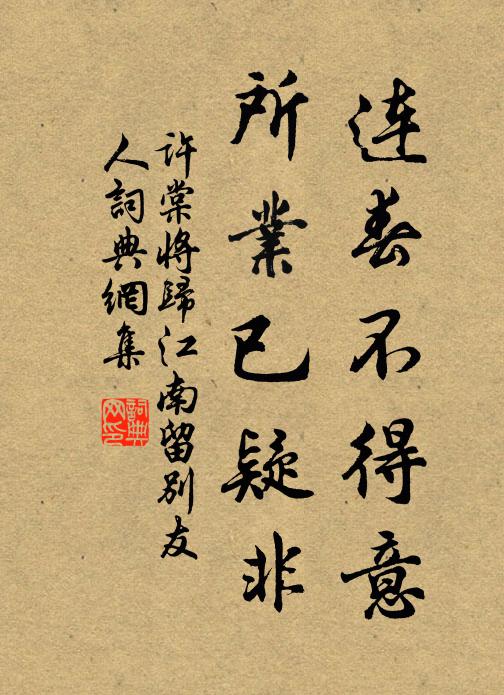 連春不得意
所業已疑非
許棠將歸江南留別友
人詞典網集
詞典
网印